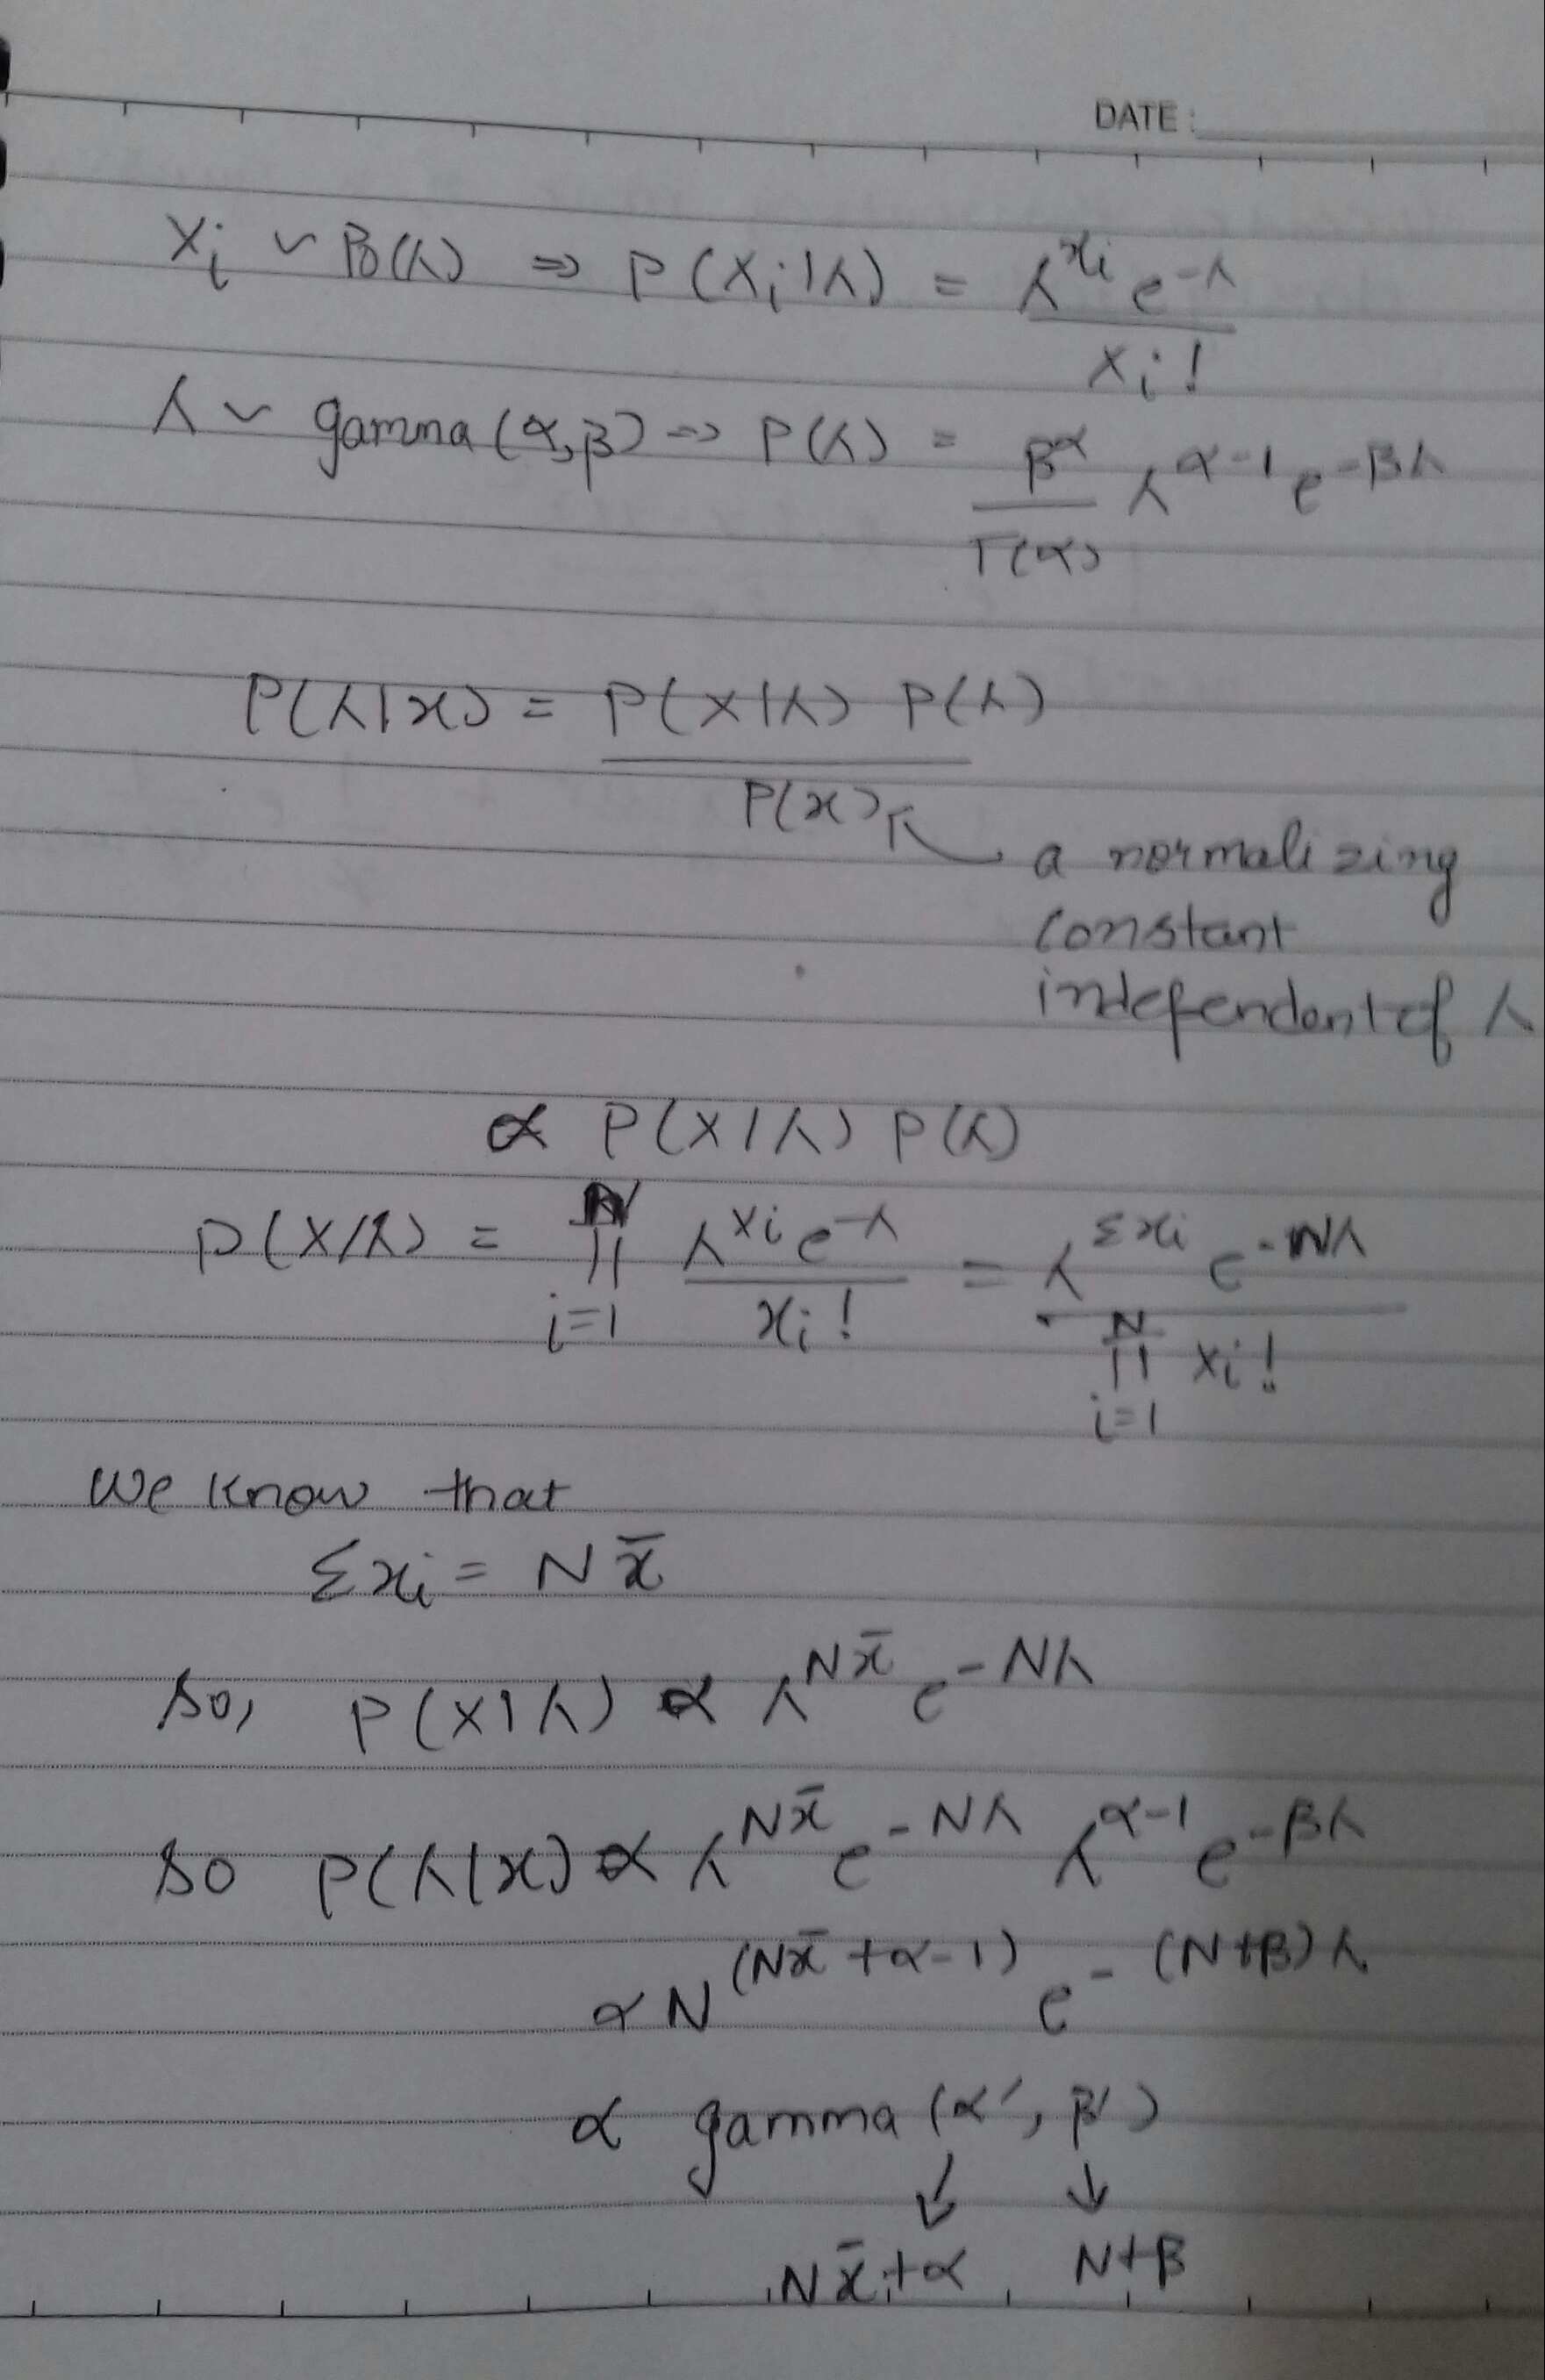 DATE:
Xi ~ Po(λ) ⇒ P(Xi|λ) = λ^xi e^-λ / xi!
λ ~ gamma(α,β) ⇒ P(λ) = β^α / Γ(α) λ^α-1 e^-βλ
P(λ|x) = P(X|λ) P(λ) / P(x)
a normalizing
constant
independent of λ
∝ P(X|λ) P(λ)
P(X/λ) = N Π i=1 λ^xi e^-λ / xi! = λ^Σxi e^-Nλ / N Π i=1 xi!
We know that
Σxi = N x̄
So, P(X|λ) ∝ λ^Nx̄ e^-Nλ
So P(λ|x) ∝ λ^Nx̄ e^-Nλ λ^α-1 e^-βλ
∝ N^(Nx̄+α-1) e^-(N+β)λ
∝ gamma (α', β')
↓ ↓
Nx̄+α N+β